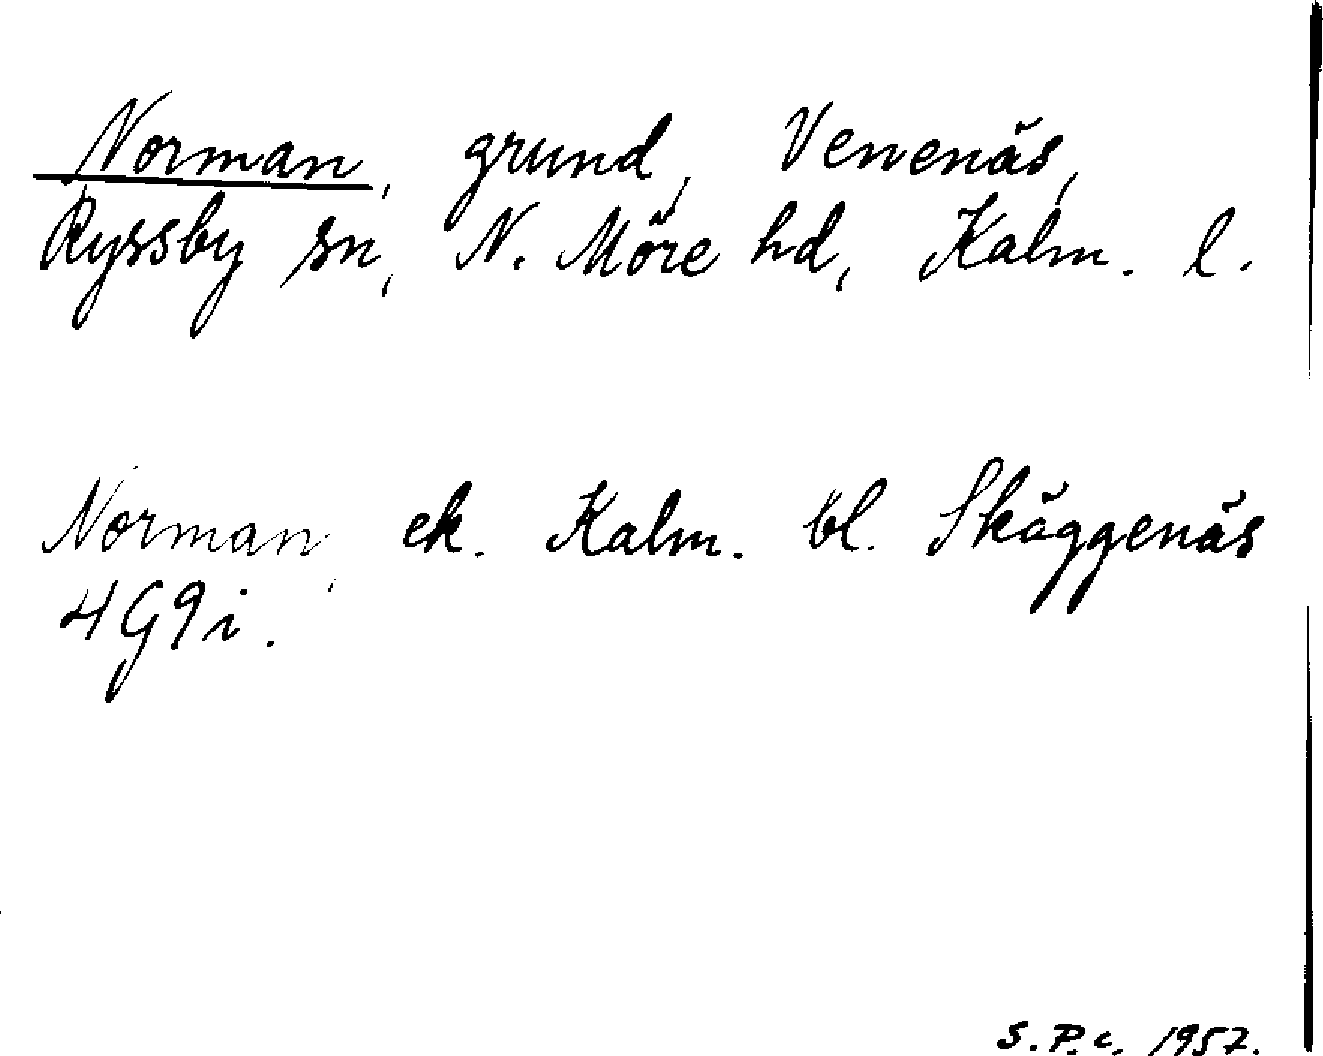 Norman, grund, Venenäs,
Ryssby sn, N. Möre hd, Kalm. l.
Norman, ek. Kalm. bl. Skäggenäs
4G9i.
S.P.c. 1957.